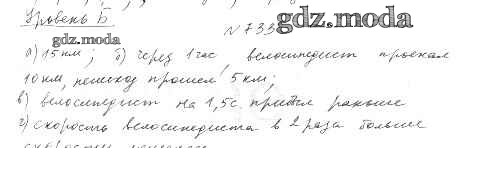 Уровень Б
N 733
gdz.moda
gdz.moda
а) 15 км; б) через 1 час, велосипедист проехал
10 км, пешеход прошел 5 км;
в) велосипедист на 1,5 с. прибыл раньше
г) скорость велосипедиста в 2 раза больше
скорости